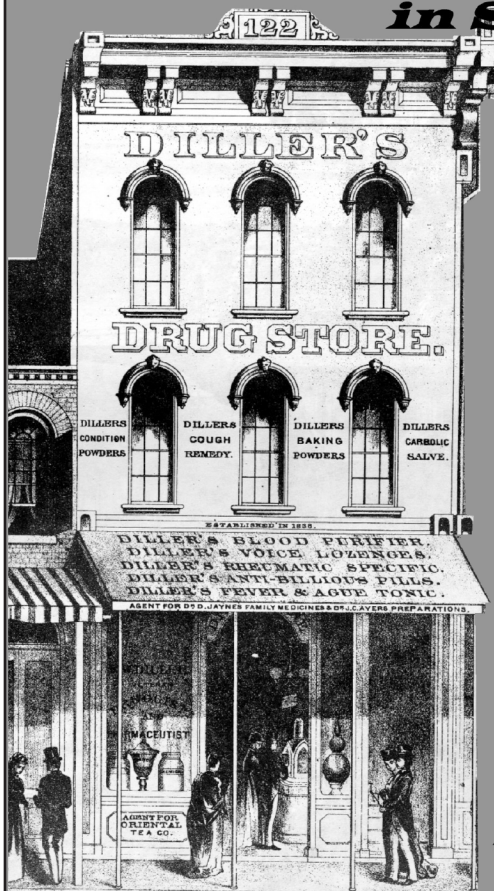 in S
122
DILLER'S
DRUG STORE.
DILLERS
CONDITION
POWDERS
DILLERS
COUGH
REMEDY.
DILLERS
BAKING
POWDERS
DILLERS
CARBOLIC
SALVE.
ESTABLISHED IN 1838.
DILLER'S BLOOD PURIFIER.
DILLER'S VOICE LOZENGES.
DILLER'S RHEUMATIC SPECIFIC.
DILLER'S ANTI-BILLIOUS PILLS.
DILLER'S FEVER & AGUE TONIC.
AGENT FOR DR D. JAYNES FAMILY MEDICINES & DR J.C. AYERS PREPARATIONS.
DILLER
AND
MACEUTIST
AGENT FOR
ORIENTAL
TEA CO.